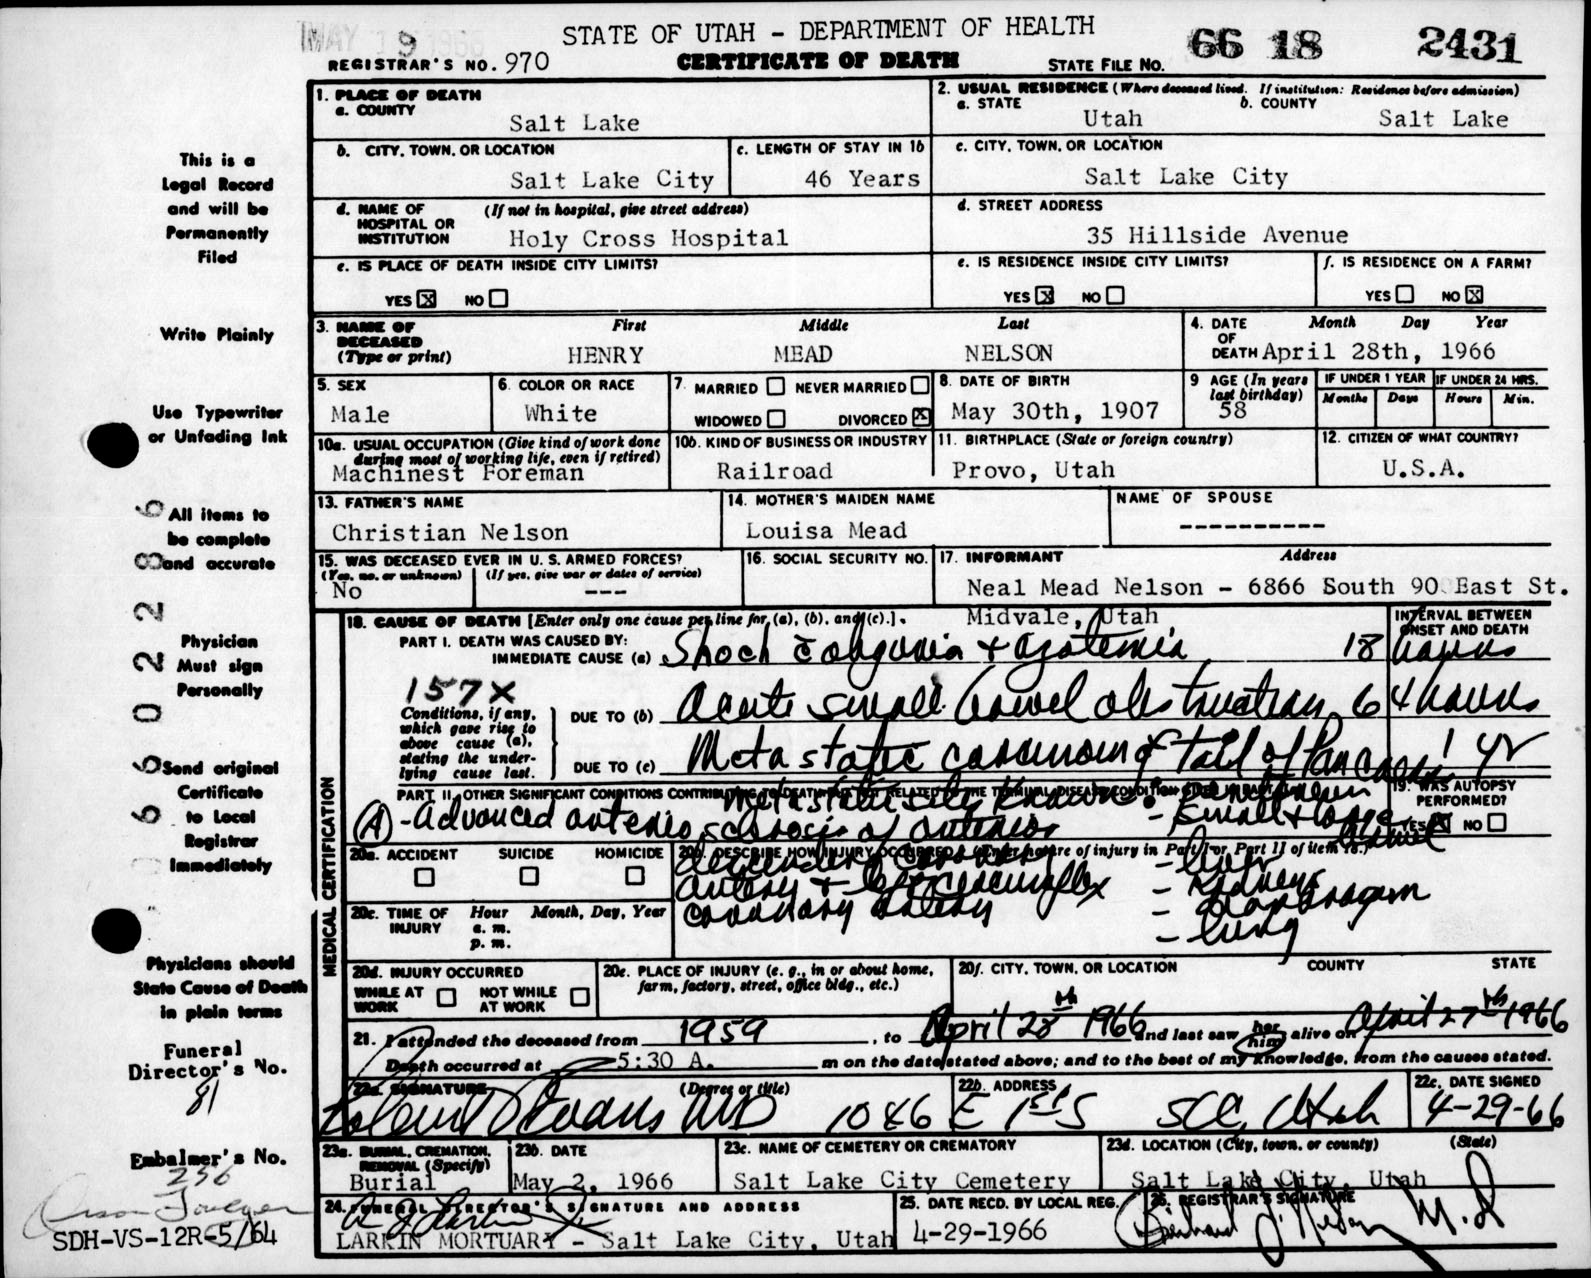 MAY 19 1966
STATE OF UTAH - DEPARTMENT OF HEALTH
REGISTRAR'S NO. 970
CERTIFICATE OF DEATH
STATE FILE NO. 66 18 2431
1. PLACE OF DEATH
a. COUNTY
Salt Lake
2. USUAL RESIDENCE (Where deceased lived. If institution: Residence before admission)
a. STATE b. COUNTY
Utah Salt Lake
b. CITY, TOWN, OR LOCATION
Salt Lake City
c. LENGTH OF STAY IN 1b
46 Years
c. CITY, TOWN, OR LOCATION
Salt Lake City
d. NAME OF HOSPITAL OR INSTITUTION (If not in hospital, give street address)
Holy Cross Hospital
d. STREET ADDRESS
35 Hillside Avenue
e. IS PLACE OF DEATH INSIDE CITY LIMITS?
YES X NO
e. IS RESIDENCE INSIDE CITY LIMITS?
YES X NO
f. IS RESIDENCE ON A FARM?
YES NO X
3. NAME OF DECEASED (Type or print)
First Middle Last
HENRY MEAD NELSON
4. DATE OF DEATH
Month Day Year
April 28th, 1966
5. SEX
Male
6. COLOR OR RACE
White
7. MARRIED NEVER MARRIED
WIDOWED DIVORCED X
8. DATE OF BIRTH
May 30th, 1907
9 AGE (In years last birthday)
58
IF UNDER 1 YEAR
Months Days
IF UNDER 24 HRS.
Hours Min.
10a. USUAL OCCUPATION (Give kind of work done during most of working life, even if retired)
Machinest Foreman
10b. KIND OF BUSINESS OR INDUSTRY
Railroad
11. BIRTHPLACE (State or foreign country)
Provo, Utah
12. CITIZEN OF WHAT COUNTRY?
U.S.A.
13. FATHER'S NAME
Christian Nelson
14. MOTHER'S MAIDEN NAME
Louisa Mead
NAME OF SPOUSE
----------
15. WAS DECEASED EVER IN U. S. ARMED FORCES?
(Yes, no, or unknown) (If yes, give war or dates of service)
No ---
16. SOCIAL SECURITY NO.
17. INFORMANT Address
Neal Mead Nelson - 6866 South 90 East St.
Midvale, Utah
18. CAUSE OF DEATH [Enter only one cause per line for (a), (b), and (c).].
INTERVAL BETWEEN ONSET AND DEATH
PART I. DEATH WAS CAUSED BY:
IMMEDIATE CAUSE (a) Shock c̄ oliguria + azotemia 18 hours
157X
Conditions, if any, which gave rise to above cause (a), stating the underlying cause last.
DUE TO (b) Acute small bowel obstruction 64 hours
DUE TO (c) Metastatic carcinoma of tail of Pancreas 1 yr
PART II. OTHER SIGNIFICANT CONDITIONS CONTRIBUTING TO DEATH BUT NOT RELATED TO THE TERMINAL DISEASE CONDITION
19. WAS AUTOPSY PERFORMED?
YES X NO
Metastatic
(A) - Advanced arteriosclerosis of anterior
descending coronary
artery + left circumflex
coronary artery
- Small + large bowel
- liver
- Kidneys
- diaphragm
- lung
20a. ACCIDENT SUICIDE HOMICIDE
20b. DESCRIBE HOW INJURY OCCURRED. (Enter nature of injury in Part I or Part II of item 18.)
20c. TIME OF INJURY
Hour Month, Day, Year
a. m.
p. m.
20d. INJURY OCCURRED
WHILE AT WORK NOT WHILE AT WORK
20e. PLACE OF INJURY (e. g., in or about home, farm, factory, street, office bldg., etc.)
20f. CITY, TOWN, OR LOCATION COUNTY STATE
21. I attended the deceased from 1959, to April 28th 1966 and last saw her him alive on April 27th 1966
Death occurred at 5:30 A. m on the date stated above; and to the best of my knowledge, from the causes stated.
22a. SIGNATURE (Degree or title)
Evans MD
22b. ADDRESS
1046 E 1st S SLC, Utah
22c. DATE SIGNED
4-29-66
23a. BURIAL, CREMATION, REMOVAL (Specify)
Burial
23b. DATE
May 2, 1966
23c. NAME OF CEMETERY OR CREMATORY
Salt Lake City Cemetery
23d. LOCATION (City, town, or county) (State)
Salt Lake City, Utah
24. FUNERAL DIRECTOR'S SIGNATURE AND ADDRESS
LARKIN MORTUARY - Salt Lake City, Utah
25. DATE RECD. BY LOCAL REG.
4-29-1966
26. REGISTRAR'S SIGNATURE
M.D.
MEDICAL CERTIFICATION
This is a
Legal Record
and will be
Permanently
Filed
Write Plainly
Use Typewriter
or Unfading Ink
All items to
be complete
and accurate
Physician
Must sign
Personally
Send original
Certificate
to Local
Registrar
Immediately
Physicians should
State Cause of Death
in plain terms
Funeral
Director's No.
81
Embalmer's No.
236
SDH-VS-12R-5/64